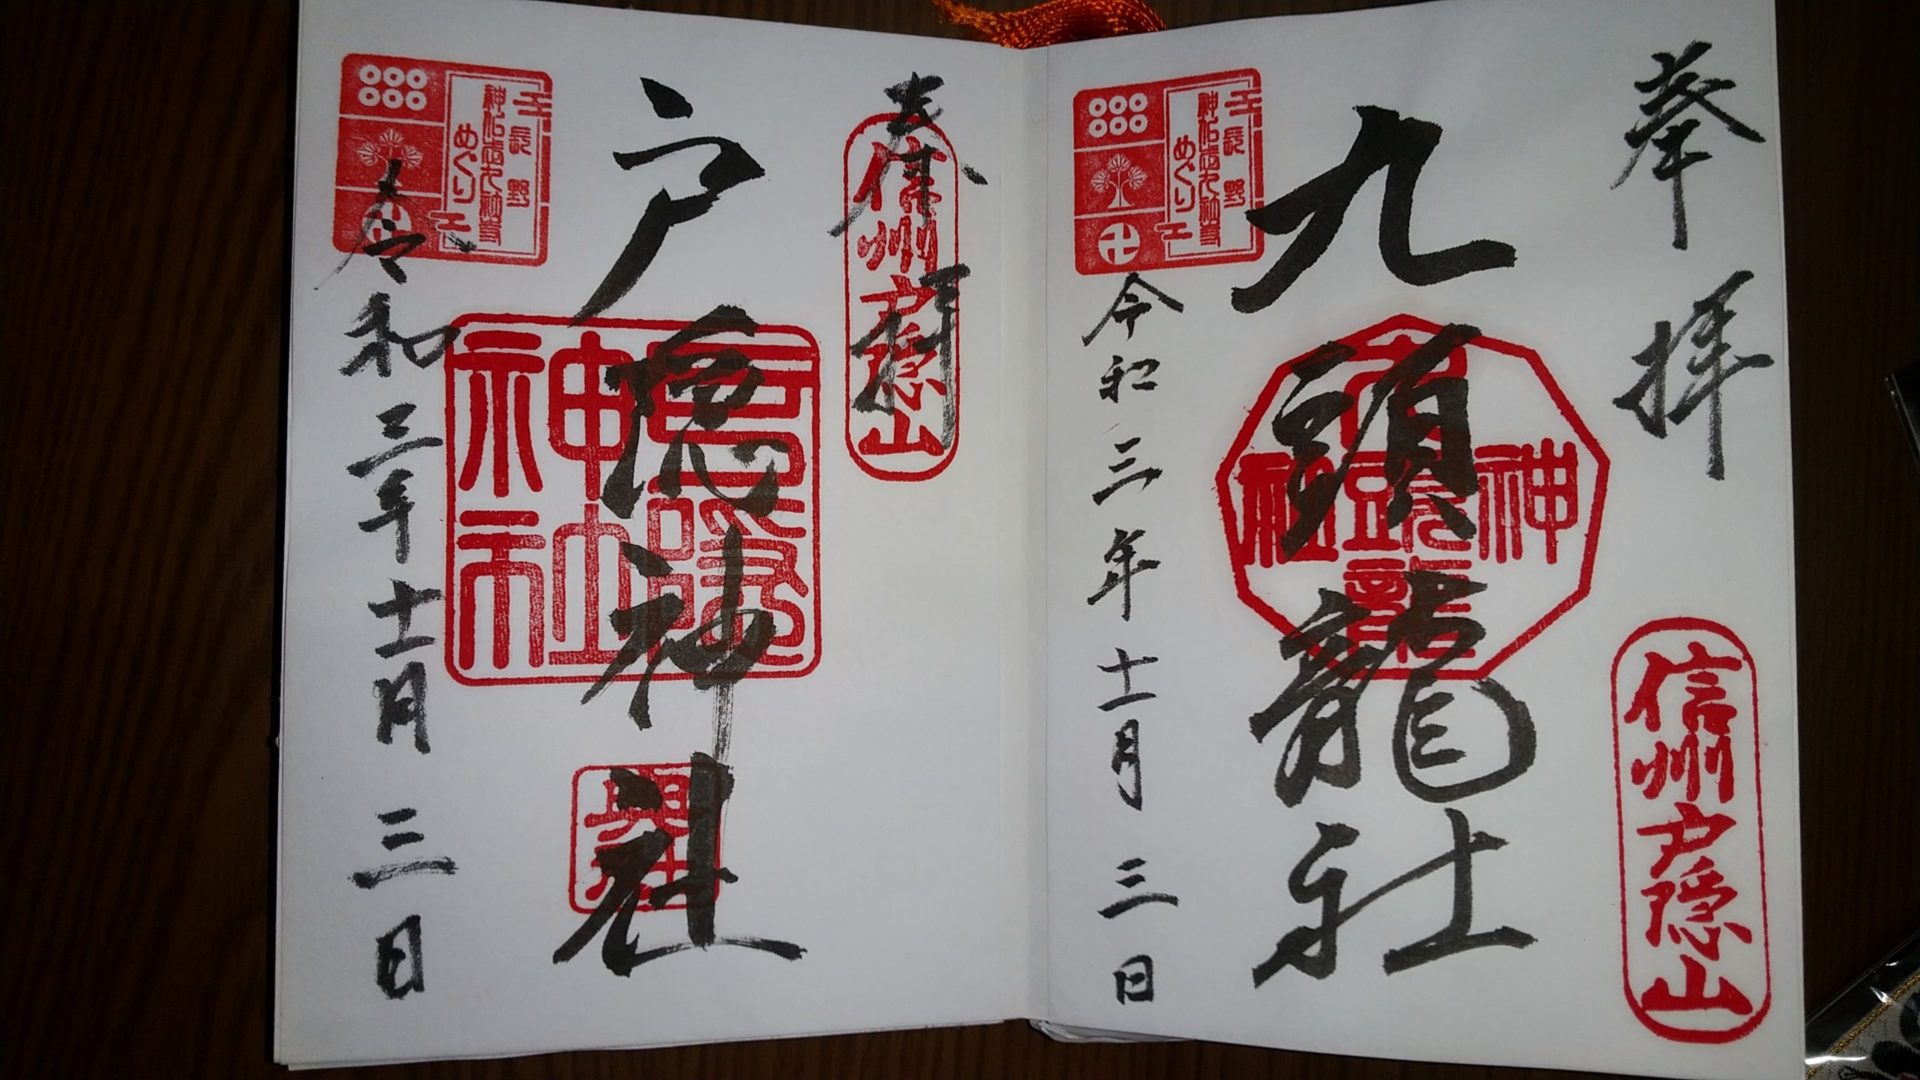 奉拝
信州戸隠山
九頭龍社
九頭龍
神社
令和三年十一月三日
長野
めぐり
奉拝
信州戸隠山
戸隠神社
戸隠
神社
令和三年十一月三日
長野
めぐり